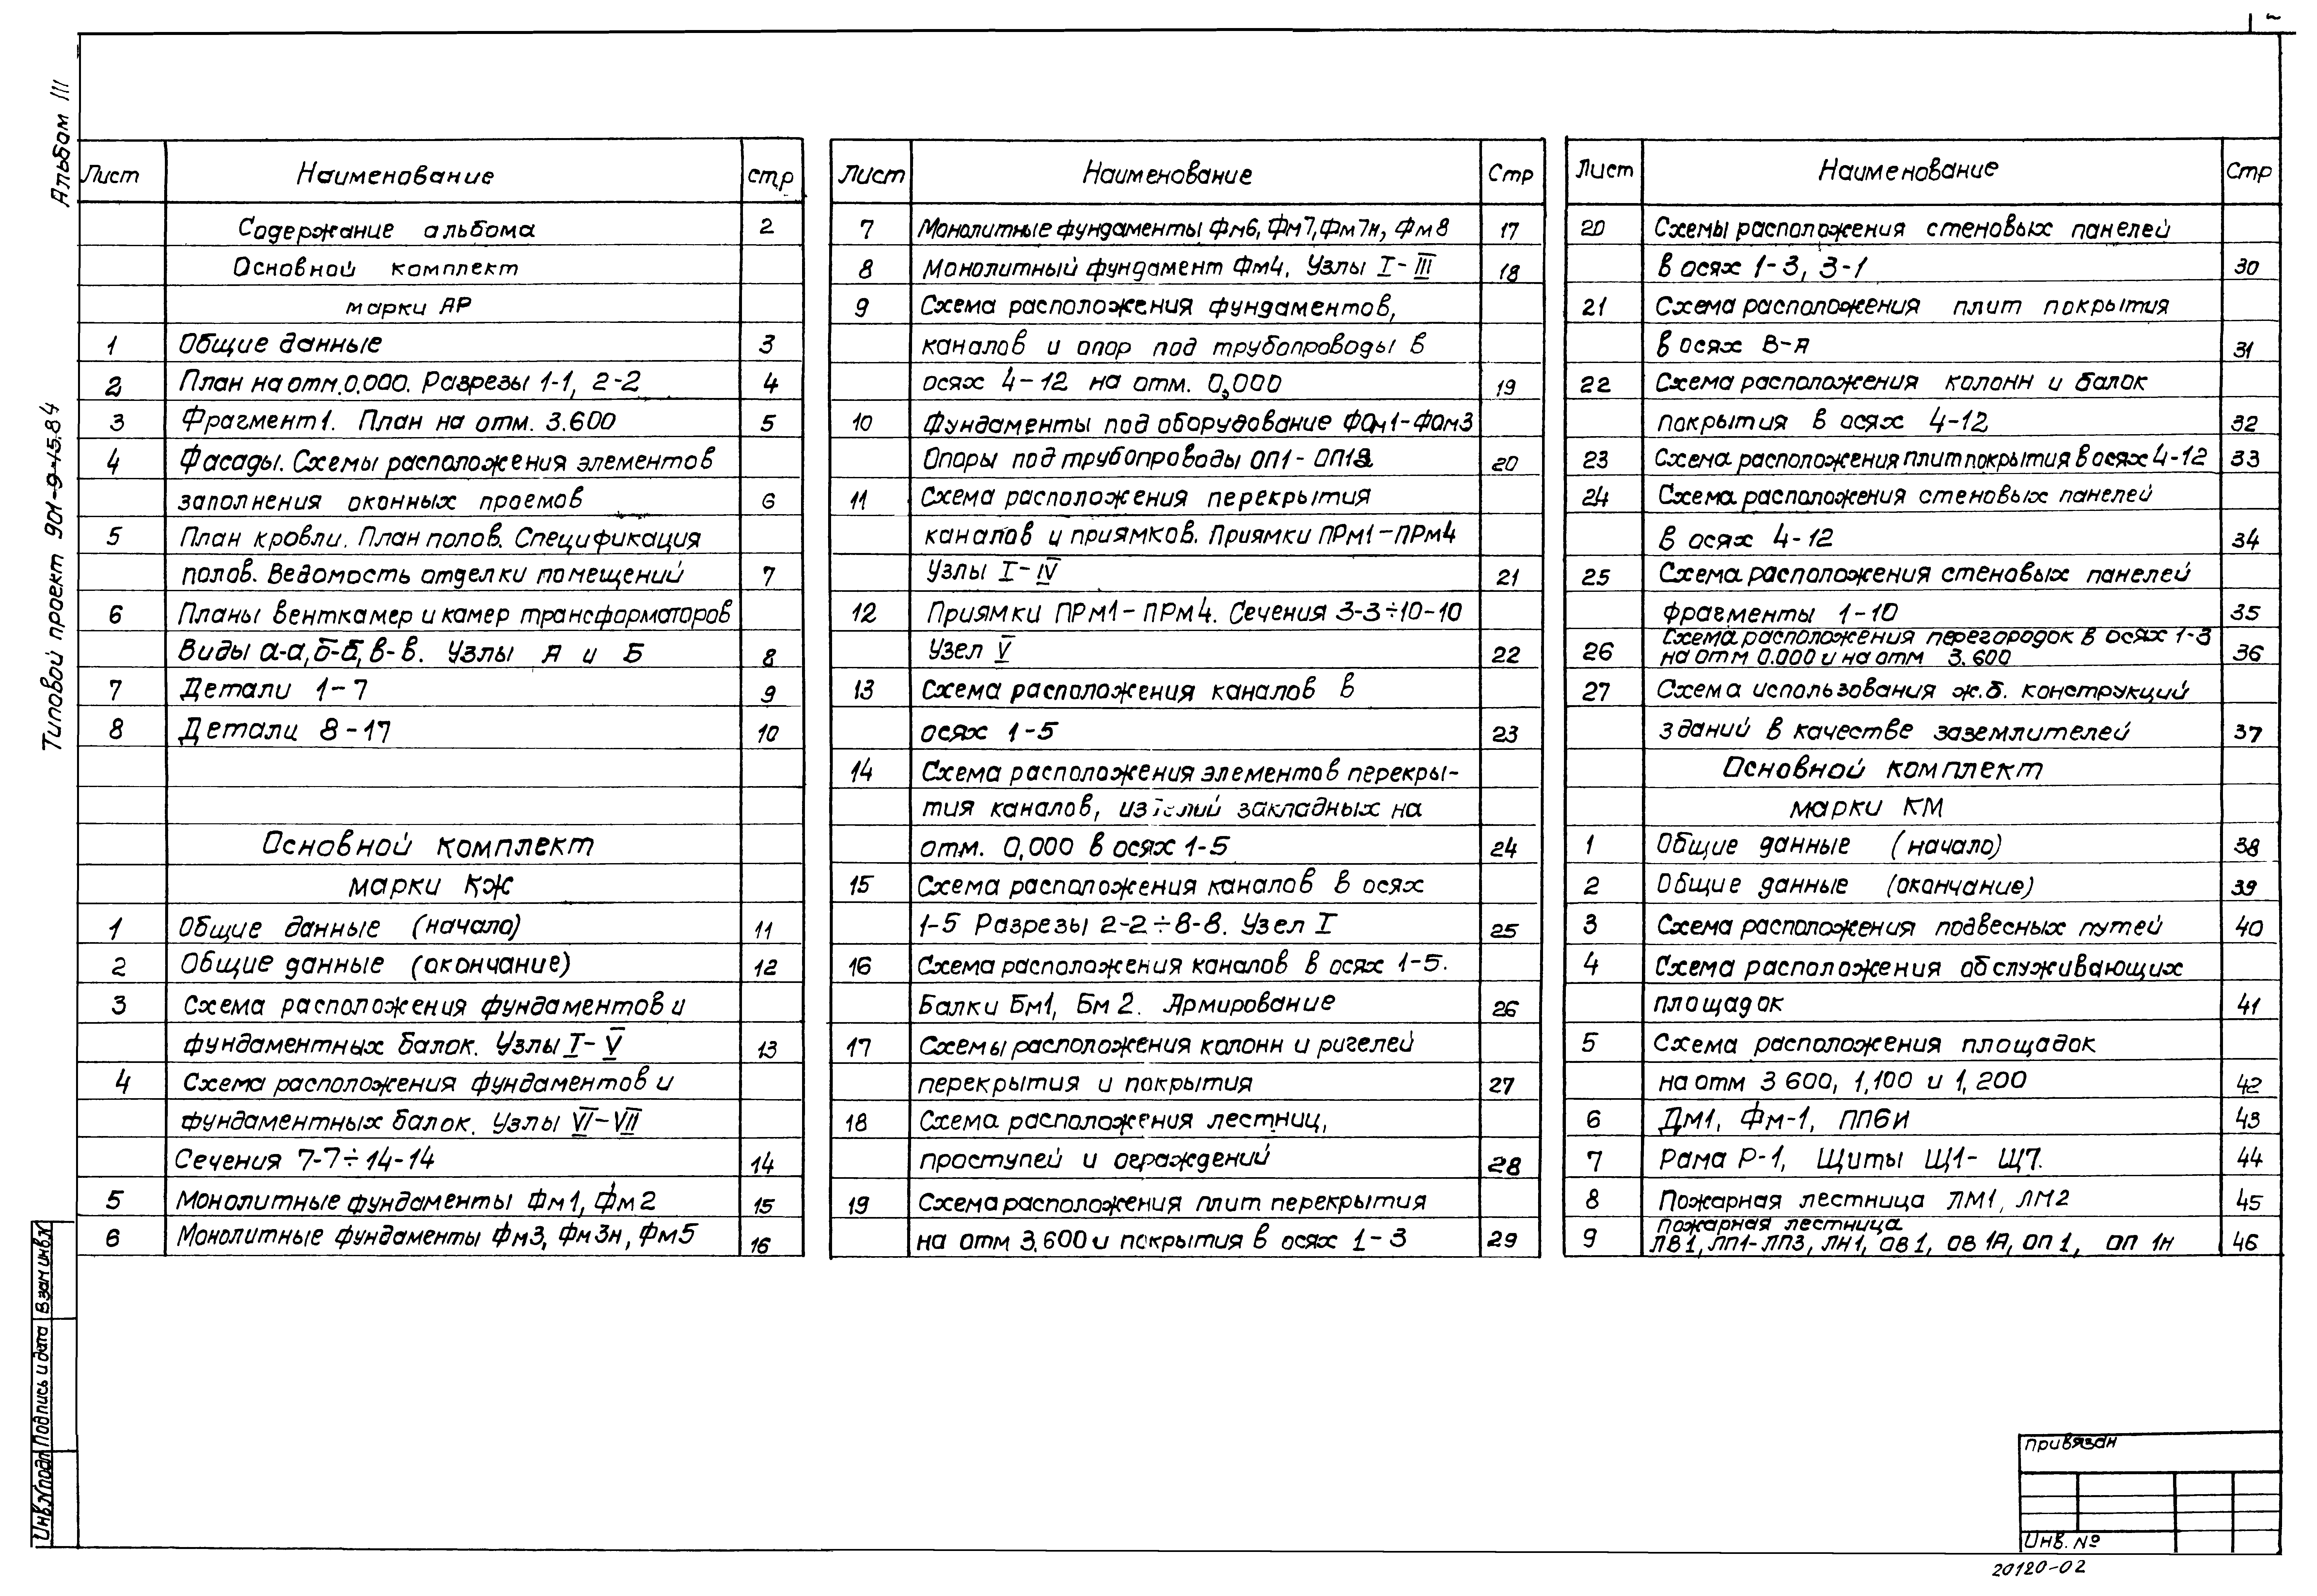 Альбом III
Типовой проект 901-9-15.84
Лист Наименование стр
Содержание альбома 2
Основной комплект
марки АР
1 Общие данные 3
2 План на отм.0.000. Разрезы 1-1, 2-2 4
3 Фрагмент 1. План на отм. 3.600 5
4 Фасады. Схемы расположения элементов
заполнения оконных проемов 6
5 План кровли. План полов. Спецификация
полов. Ведомость отделки помещений 7
6 Планы венткамер и камер трансформаторов
Виды а-а, б-б, в-в. Узлы А и Б 8
7 Детали 1-7 9
8 Детали 8-17 10
Основной комплект
марки КЖ
1 Общие данные (начало) 11
2 Общие данные (окончание) 12
3 Схема расположения фундаментов и
фундаментных балок. Узлы I-V 13
4 Схема расположения фундаментов и
фундаментных балок. Узлы VI-VII
Сечения 7-7÷14-14 14
5 Монолитные фундаменты Фм1, Фм2 15
6 Монолитные фундаменты Фм3, Фм3н, Фм5 16
Лист Наименование Стр
7 Монолитные фундаменты Фм6, Фм7, Фм7н, Фм8 17
8 Монолитный фундамент Фм4. Узлы I-III 18
9 Схема расположения фундаментов,
каналов и опор под трубопроводы в
осях 4-12 на отм. 0,000 19
10 Фундаменты под оборудование ФОм1-ФОм3
Опоры под трубопроводы 20
11 Схема расположения перекрытия
каналов и приямков. Приямки ПРм1-ПРм4
Узлы I-IV 21
12 Приямки ПРм1-ПРм4. Сечения 3-3÷10-10
Узел V 22
13 Схема расположения каналов в
осях 1-5 23
14 Схема расположения элементов перекры-
тия каналов, изделий закладных на
отм. 0,000 в осях 1-5 24
15 Схема расположения каналов в осях
1-5 Разрезы 2-2÷8-8. Узел I 25
16 Схема расположения каналов в осях 1-5.
Балки Бм1, Бм2. Армирование 26
17 Схемы расположения колонн и ригелей
перекрытия и покрытия 27
18 Схема расположения лестниц,
проступей и ограждений 28
19 Схема расположения плит перекрытия
на отм 3.600 и покрытия в осях 1-3 29
Лист Наименование Стр
20 Схемы расположения стеновых панелей
в осях 1-3, 3-1 30
21 Схема расположения плит покрытия
в осях В-А 31
22 Схема расположения колонн и балок
покрытия в осях 4-12 32
23 Схема расположения плит покрытия в осях 4-12 33
24 Схема расположения стеновых панелей
в осях 4-12 34
25 Схема расположения стеновых панелей
фрагменты 1-10 35
26 Схема расположения перегородок в осях 1-3
на отм 0.000 и на отм 3.600 36
27 Схема использования ж.б. конструкций
зданий в качестве заземлителей 37
Основной комплект
марки КМ
1 Общие данные (начало) 38
2 Общие данные (окончание) 39
3 Схема расположения подвесных путей 40
4 Схема расположения обслуживающих
площадок 41
5 Схема расположения площадок
на отм 3 600, 1,100 и 1,200 42
6 Дм1, Фм-1, ПП6И 43
7 Рама Р-1, Щиты Щ1- Щ7. 44
8 Пожарная лестница ЛМ1, ЛМ2 45
9 Пожарная лестница
ЛВ1, ЛП1-ЛП3, ЛН1, ОВ1, ОВ 1А, ОП 1, ОП 1Н 46
Инв.N подл Подпись и дата Взам инв.N
Привязан
Инв. №
20120-02